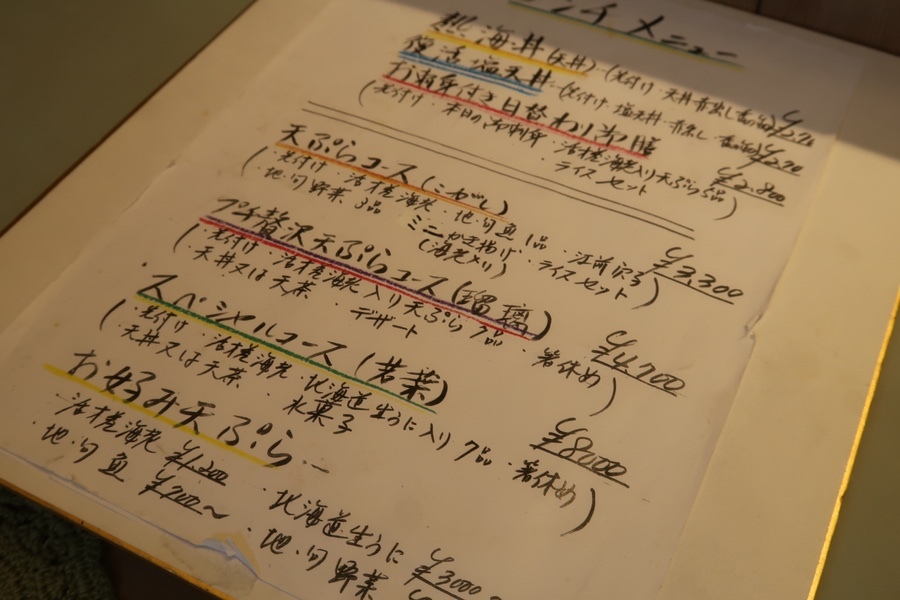 ランチメニュー
熱海丼(天丼) (先付け・天丼・香の物) ¥2,2
復活塩天丼 (先付け・塩天丼・香の物) ¥2,270
お刺身付き日替わり御膳 ¥2,800
(先付け・本日の御刺身・活〆海老入り天ぷら5品・ライスセット)
天ぷらコース(こがし) ¥3,300
(・先付け・活〆海老・地・旬魚1品・江戸前穴子
・地・旬野菜3品 ミニかき揚げ(海老入り)・ライスセット)
プチ贅沢天ぷらコース(瑠璃) ¥4,700
(・先付け・活〆海老入り天ぷら7品・箸休め
・天丼又は天茶・デザート)
スペシャルコース(若菜) ¥8,000
(・先付け・活〆海老・北海道生うに入り7品・箸休め
・天丼又は天茶・水菓子)
お好み天ぷら
・活〆海老 ¥1,200 ・北海道生うに ¥3,000
・地・旬魚 ¥700〜 ・地・旬野菜